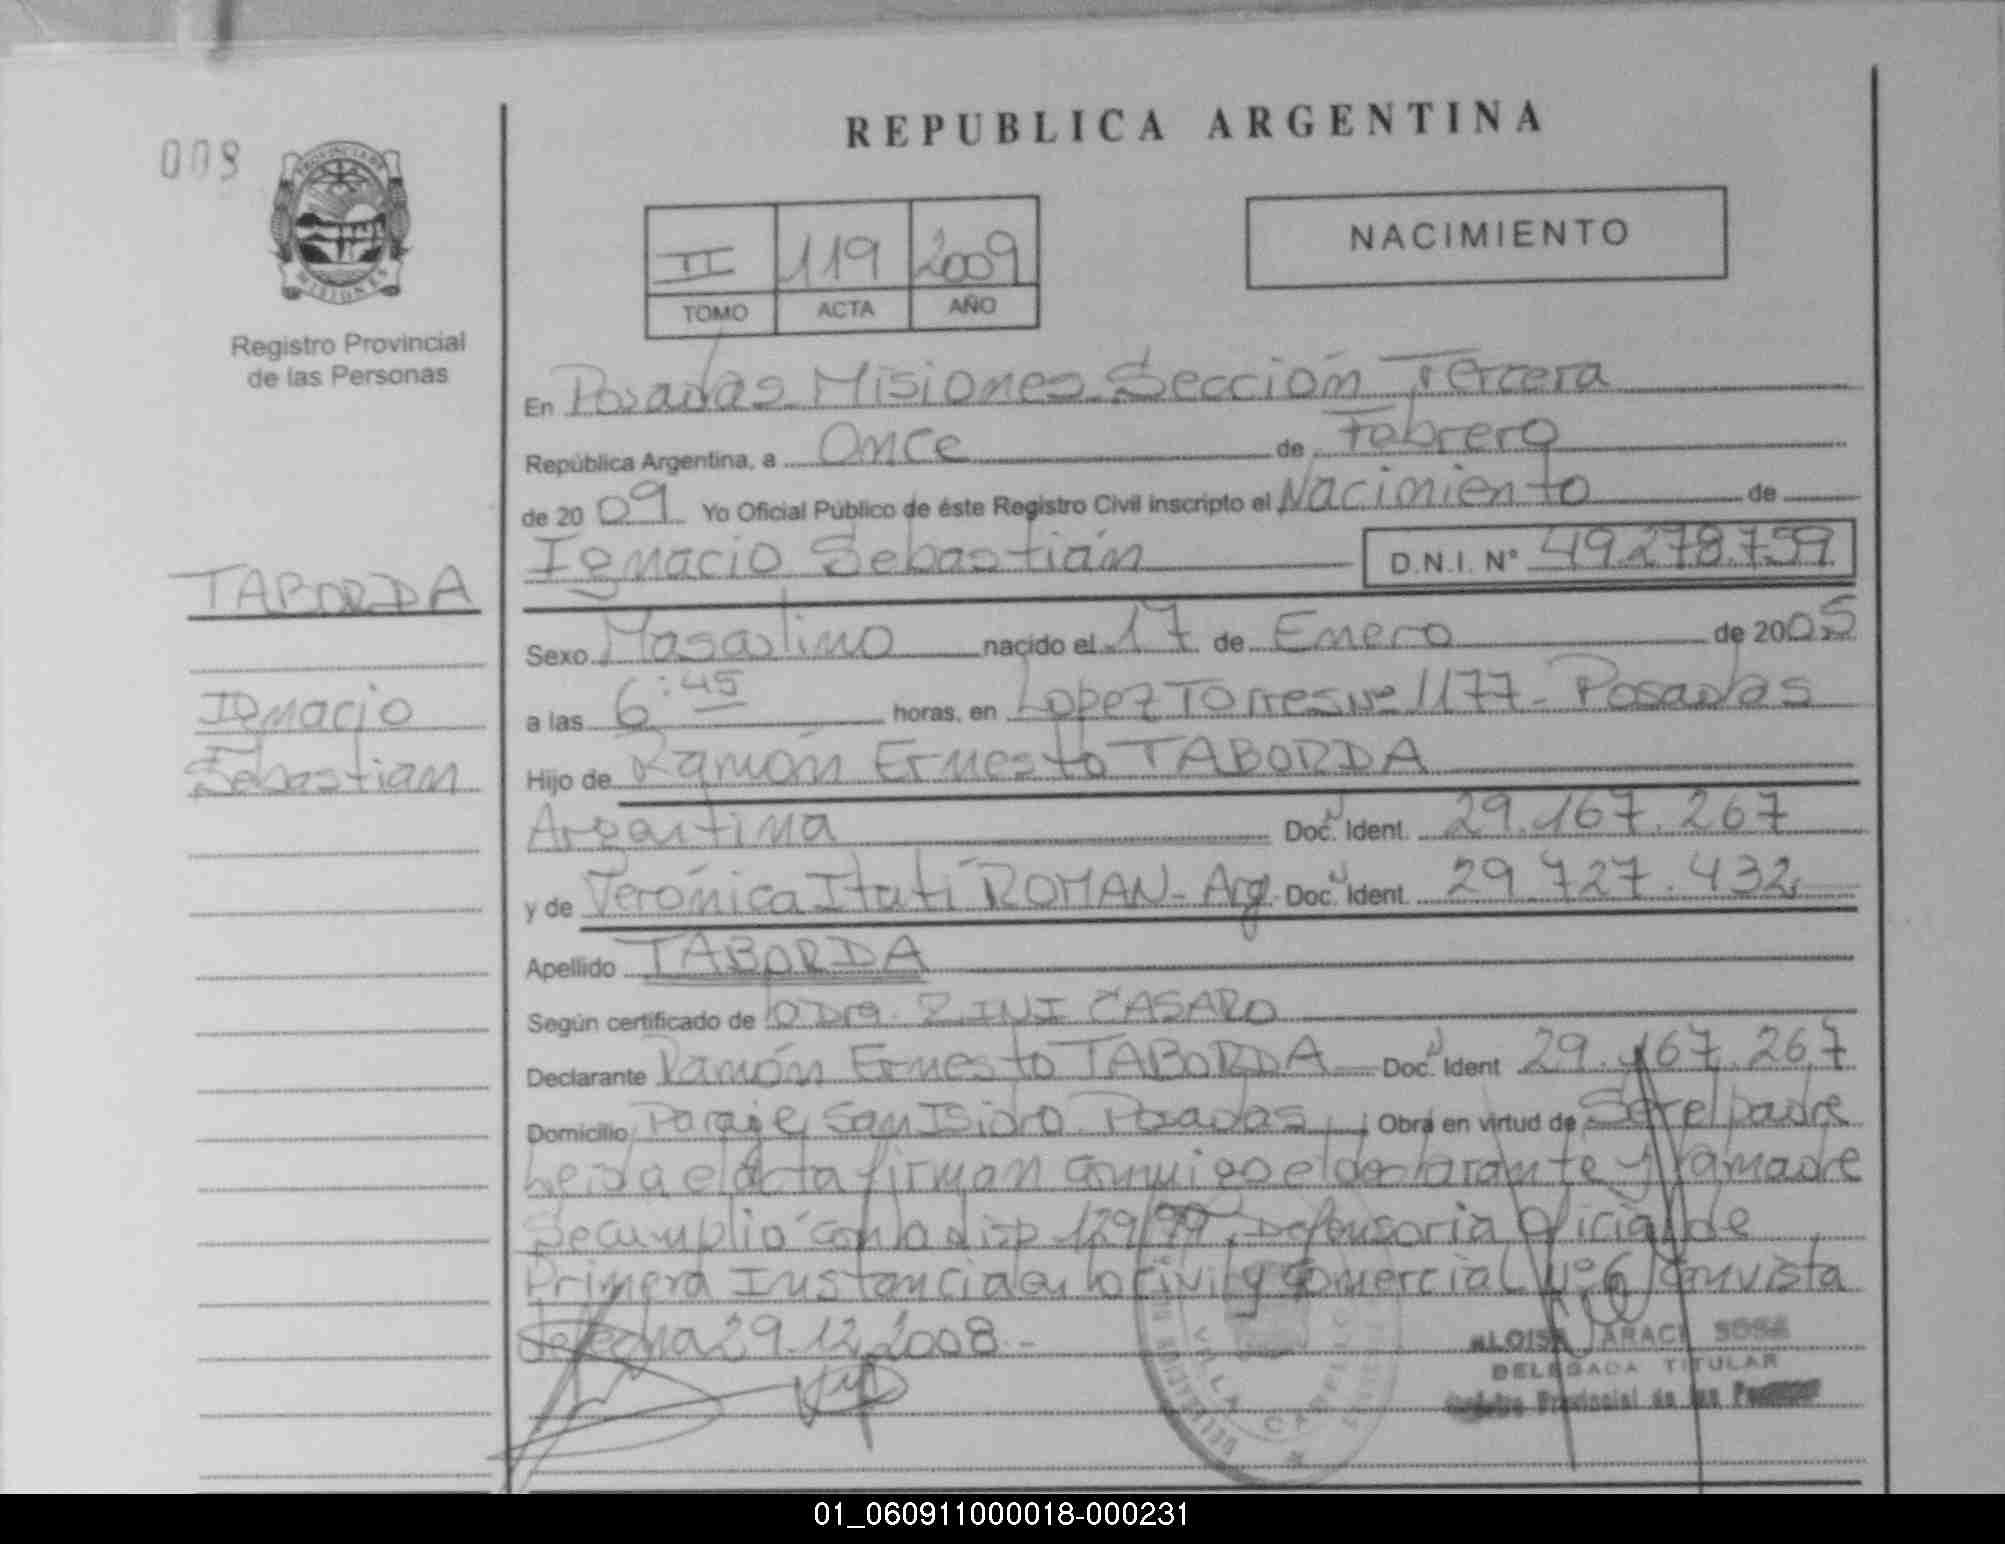 REPUBLICA ARGENTINA
009
PROVINCIA DE
MISIONES
Registro Provincial
de las Personas
II 119 2009
TOMO ACTA AÑO
NACIMIENTO
En Posadas Misiones Sección Tercera
República Argentina, a Once de Febrero
de 2009 Yo Oficial Público de éste Registro Civil inscripto el Nacimiento de
Ignacio Sebastián D.N.I. N° 49.278.759
TABORDA
Ignacio
Sebastian
Sexo Masculino nacido el 17 de Enero de 2005
a las 6:45 horas, en Lopez Torres Nº 1177 - Posadas
Hijo de Ramón Ernesto TABORDA
Argentina Doc. Ident. 29.167.267
y de Verónica Itatí ROMAN - Arg. Doc. Ident. 29.727.432
Apellido TABORDA
Según certificado de la Dra. ZINI CASARO
Declarante Ramón Ernesto TABORDA Doc. Ident 29.167.267
Domicilio Paraje San Isidro Posadas Obra en virtud de Ser el padre
Leida el acta firman conmigo el declarante y la madre
Se cumplió con la disp 129/99. Defensoria Oficial de
Primera Instancia en lo Civil y Comercial Nº 6 con vista
de fecha 29.12.2008.-
ALOISA ARACI SOSA
DELEGADA TITULAR
Registro Provincial de las Personas
VILLA CABELLO
01_060911000018-000231